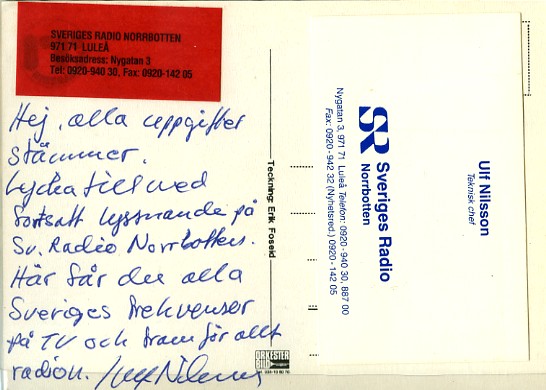 SVERIGES RADIO NORRBOTTEN
971 71 LULEÅ
Besöksadress: Nygatan 3
Tel: 0920-940 30, Fax: 0920-142 05
Hej, alla uppgifter
stämmer.
Lycka till med
fortsatt lyssnande på
Sv. Radio Norrbotten.
Här får du alla
Sveriges frekvenser
på TV och framför allt
radion. Ulf Nilsson
Teckning: Erik Foseid
ORKESTER
BILD
Ulf Nilsson
Teknisk chef
SR Sveriges Radio
Norrbotten
Nygatan 3, 971 71 Luleå Telefon: 0920-940 30, 887 00
Fax: 0920-942 32 (Nyhetsred.) 0920-142 05